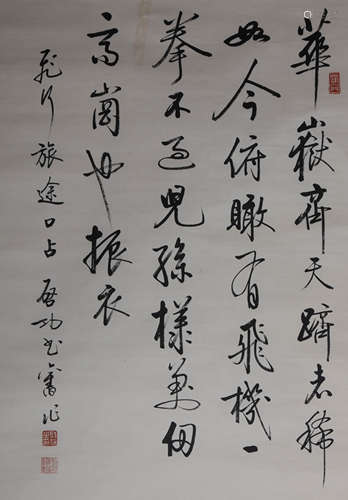 華嶽齊天躋者稀
如今俯瞰有飛機一
拳不過兒孫樣萬仞
高崗也振衣
飛行旅途口占 啓功書舊作